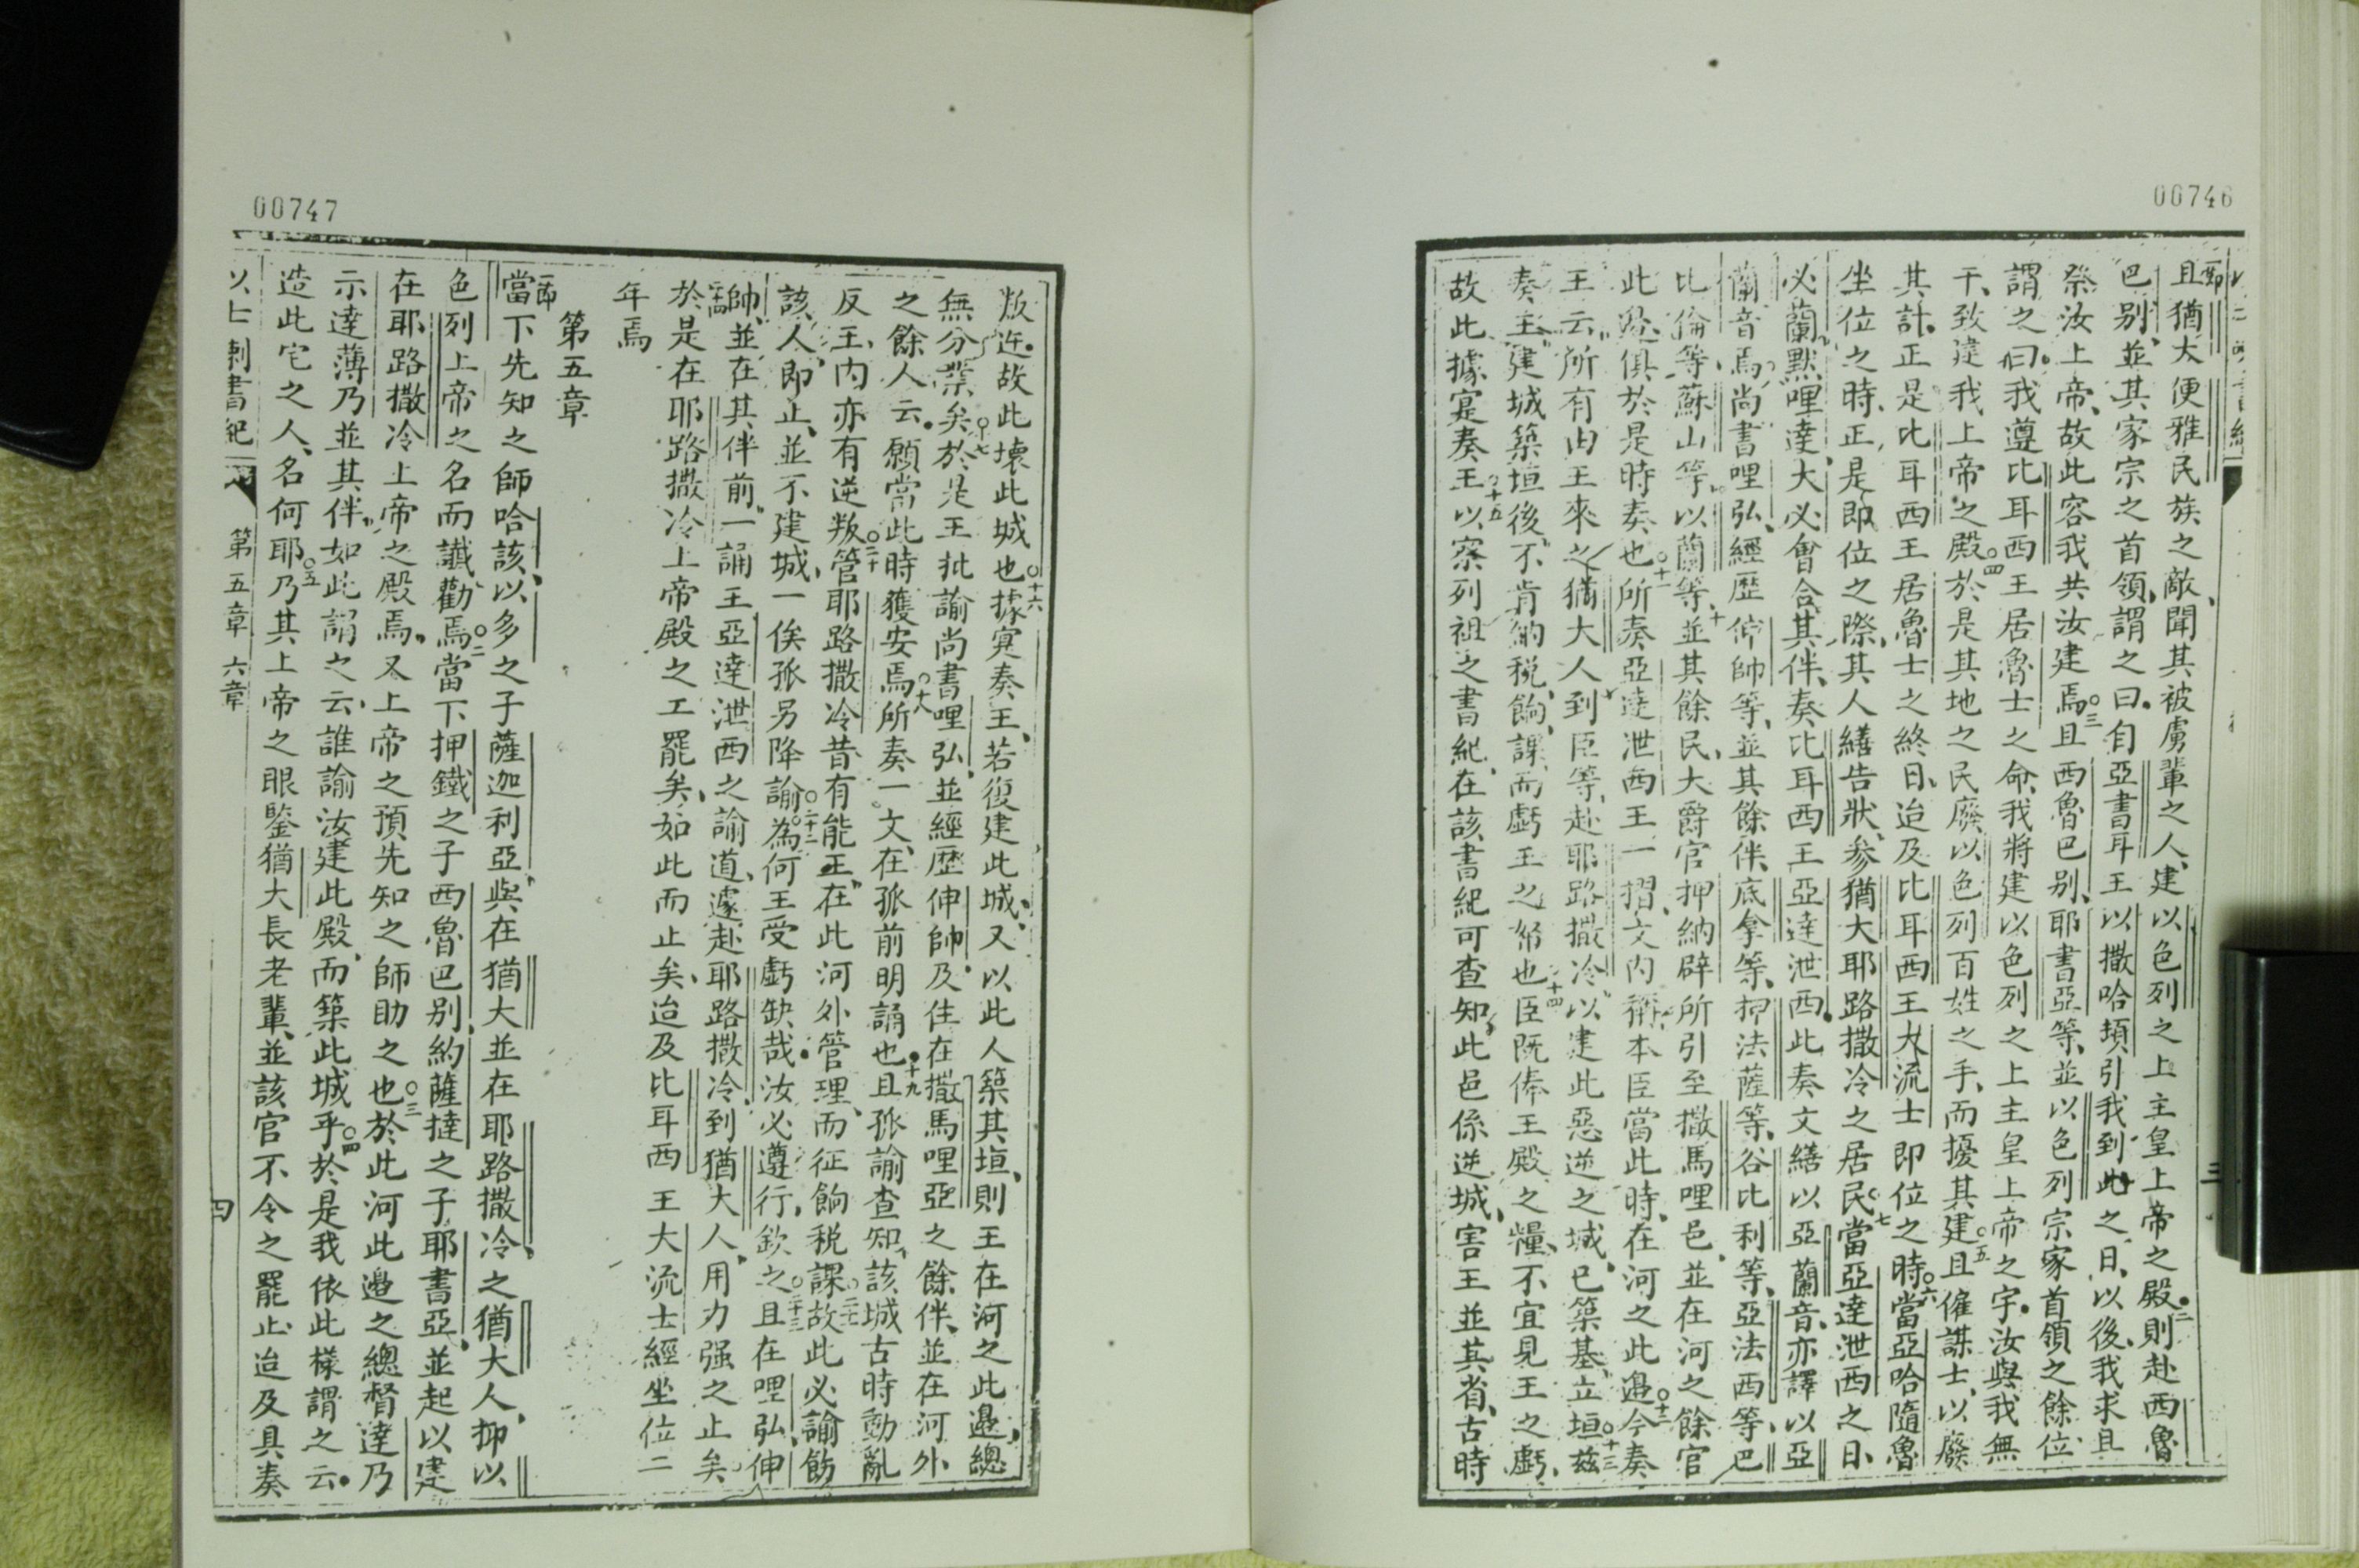 00746
一節
且猶大便雅民族之敵、聞其被虜輩之人、建以色列之上主皇上帝之殿○二則赴西魯
巴别、並其家宗之首領、謂之曰、自亞書耳王以撒哈頓引我到此之日、以後、我求且
祭汝上帝、故此容我共汝建焉○三且西魯巴别、耶書亞等、並以色列宗家首領之餘位
謂之曰、我遵比耳西王居魯士之命、我將建以色列之上主皇上帝之宇、汝與我無
干、致建我上帝之殿○四於是其地之民廢以色列百姓之手、而擾其建○五且僱謀士、以廢
其計、正是比耳西王居魯士之終日、迨及比耳西王大流士即位之時○六當亞哈隨魯
坐位之時、正是即位之際、其人繕告狀、參猶大耶路撒冷之居民○七當亞達泄西之日、
必蘭默哩達、大必會合其伴、奏比耳西王亞達泄西、此奏文繕以亞蘭音、亦譯以亞
蘭音焉、尚書哩弘、經歷伸帥等、並其餘伴、底拿等、押法薩等、谷比利等、亞法西等、巴
比倫等、蘇山等、以蘭等、十並其餘民、大爵官押納辟所引至撒馬哩邑、並在河之餘官
此邊俱於是時奏也○十一所奏亞達泄西王一摺、文内稱、本臣當此時、在河之此邊○十二今奏
王云、所有由王來之猶大人到臣等、赴耶路撒冷、以建此惡逆之城、已築基、立垣○十三兹
奏王、建城築垣後、不肯納税、餉、課、而虧王之帑也○十四臣既俸王殿之糧、不宜見王之虧、
故此據寔奏王○十五以察列祖之書紀、在該書紀可查知、此邑係逆城、害王並其省、古時
三
00747
叛迕、故此壞此城也○十六據寔奏王、若復建此城、又以此人築其垣、則王在河之此邊、總
無分業矣○十七於是王批諭尚書哩弘、並經歷伸帥、及住在撒馬哩亞之餘伴、並在河外
之餘人云、願當此時獲安焉○十八所奏一文、在孤前明誦也○十九且孤諭查知、該城古時動亂
反王、内亦有逆叛○二十管耶路撒冷昔有能王、在此河外管理、而征餉税課○二十一故此必諭飭
該人、即止、並不建城、一俟孤另降諭○二十二為何王受虧缺哉、汝必遵行、欽之○二十三且在哩弘、伸
帥、並在其伴前、一誦王亞達泄西之諭道、遽赴耶路撒冷、到猶大人、用力强之止矣○二十四
於是在耶路撒冷上帝殿之工罷矣、如此而止矣、迨及比耳西王大流士經坐位二
年焉
第五章
一節
當下先知之師哈該、以多之子薩迦利亞與在猶大並在耶路撒冷之猶大人、抑以
色列上帝之名而讖勸焉○二當下押鐵之子西魯巴别、約薩撻之子耶書亞、並起以建
在耶路撒冷上帝之殿焉、又上帝之預先知之師助之也○三於此河此邊之總督達乃
示達薄乃並其伴、如此謂之云、誰諭汝建此殿、而築此城乎○四於是我依此樣謂之云、
造此宅之人、名何耶○五乃其上帝之眼鑒猶大長老輩、並該官不令之罷止、迨及具奏
以士喇書紀 第五章 六章 四